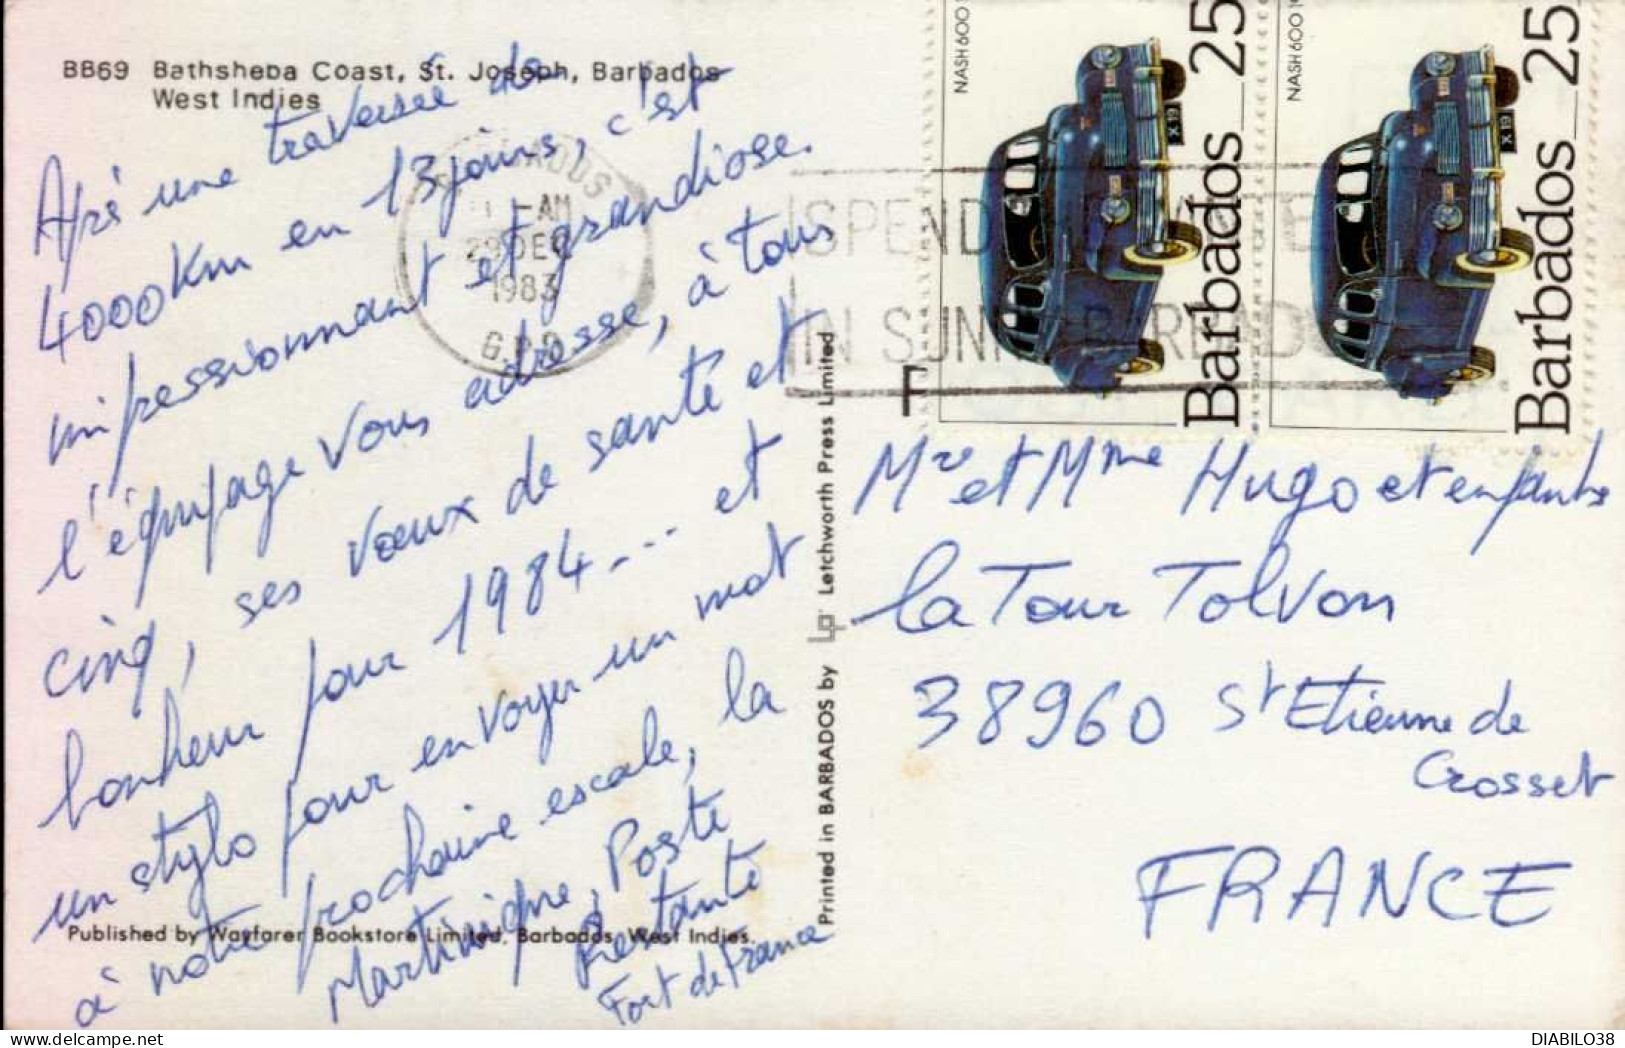 BB69 Bathsheba Coast, St. Joseph, Barbados
West Indies
Aprè une traversée de
4000Km en 13 jours, c'est
impressionnant et grandiose.
l'équipage vous adresse, à tous
cinq, ses vœux de santé et
bonheur pour 1984... et
un stylo pour envoyer un mot
à notre prochaine escale, la
Martinique, Poste
Restante
Fort de France
Published by Wayfarer Bookstore Limited, Barbados, West Indies.
Printed in BARBADOS by Letchworth Press Limited
BARBADOS
AM
29 DEC
1983
G.P.O.
SPEND
IN SUNNY BARBADOS
F
NASH 600
Barbados 25
X 19
NASH 600
Barbados 25
X 19
Mr et Mme Hugo et enfants
la Tour Tolvon
38960 St Etienne de
Crosset
FRANCE
DIABILO38